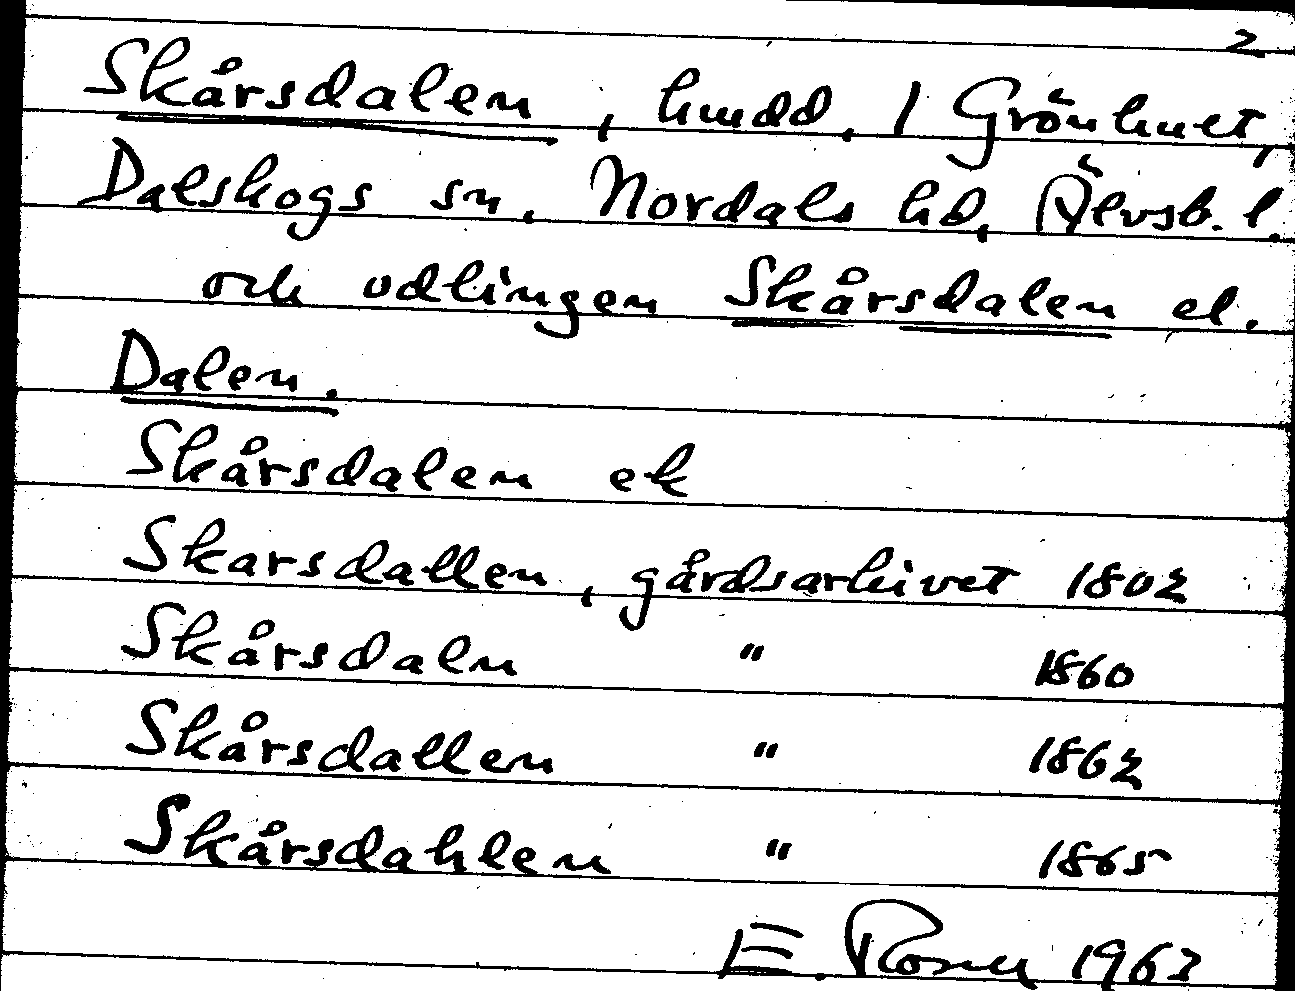 2
Skårsdalen, hmdd, 1 Grönhult,
Dalskogs sn. Nordals hd, Älvsb. l.
och odlingen Skårsdalen el.
Dalen.
Skårsdalen ek
Skarsdallen, gårdsarkivet 1802
Skårsdaln " 1860
Skårsdallen " 1862
Skårsdahlen " 1865
E. 1963